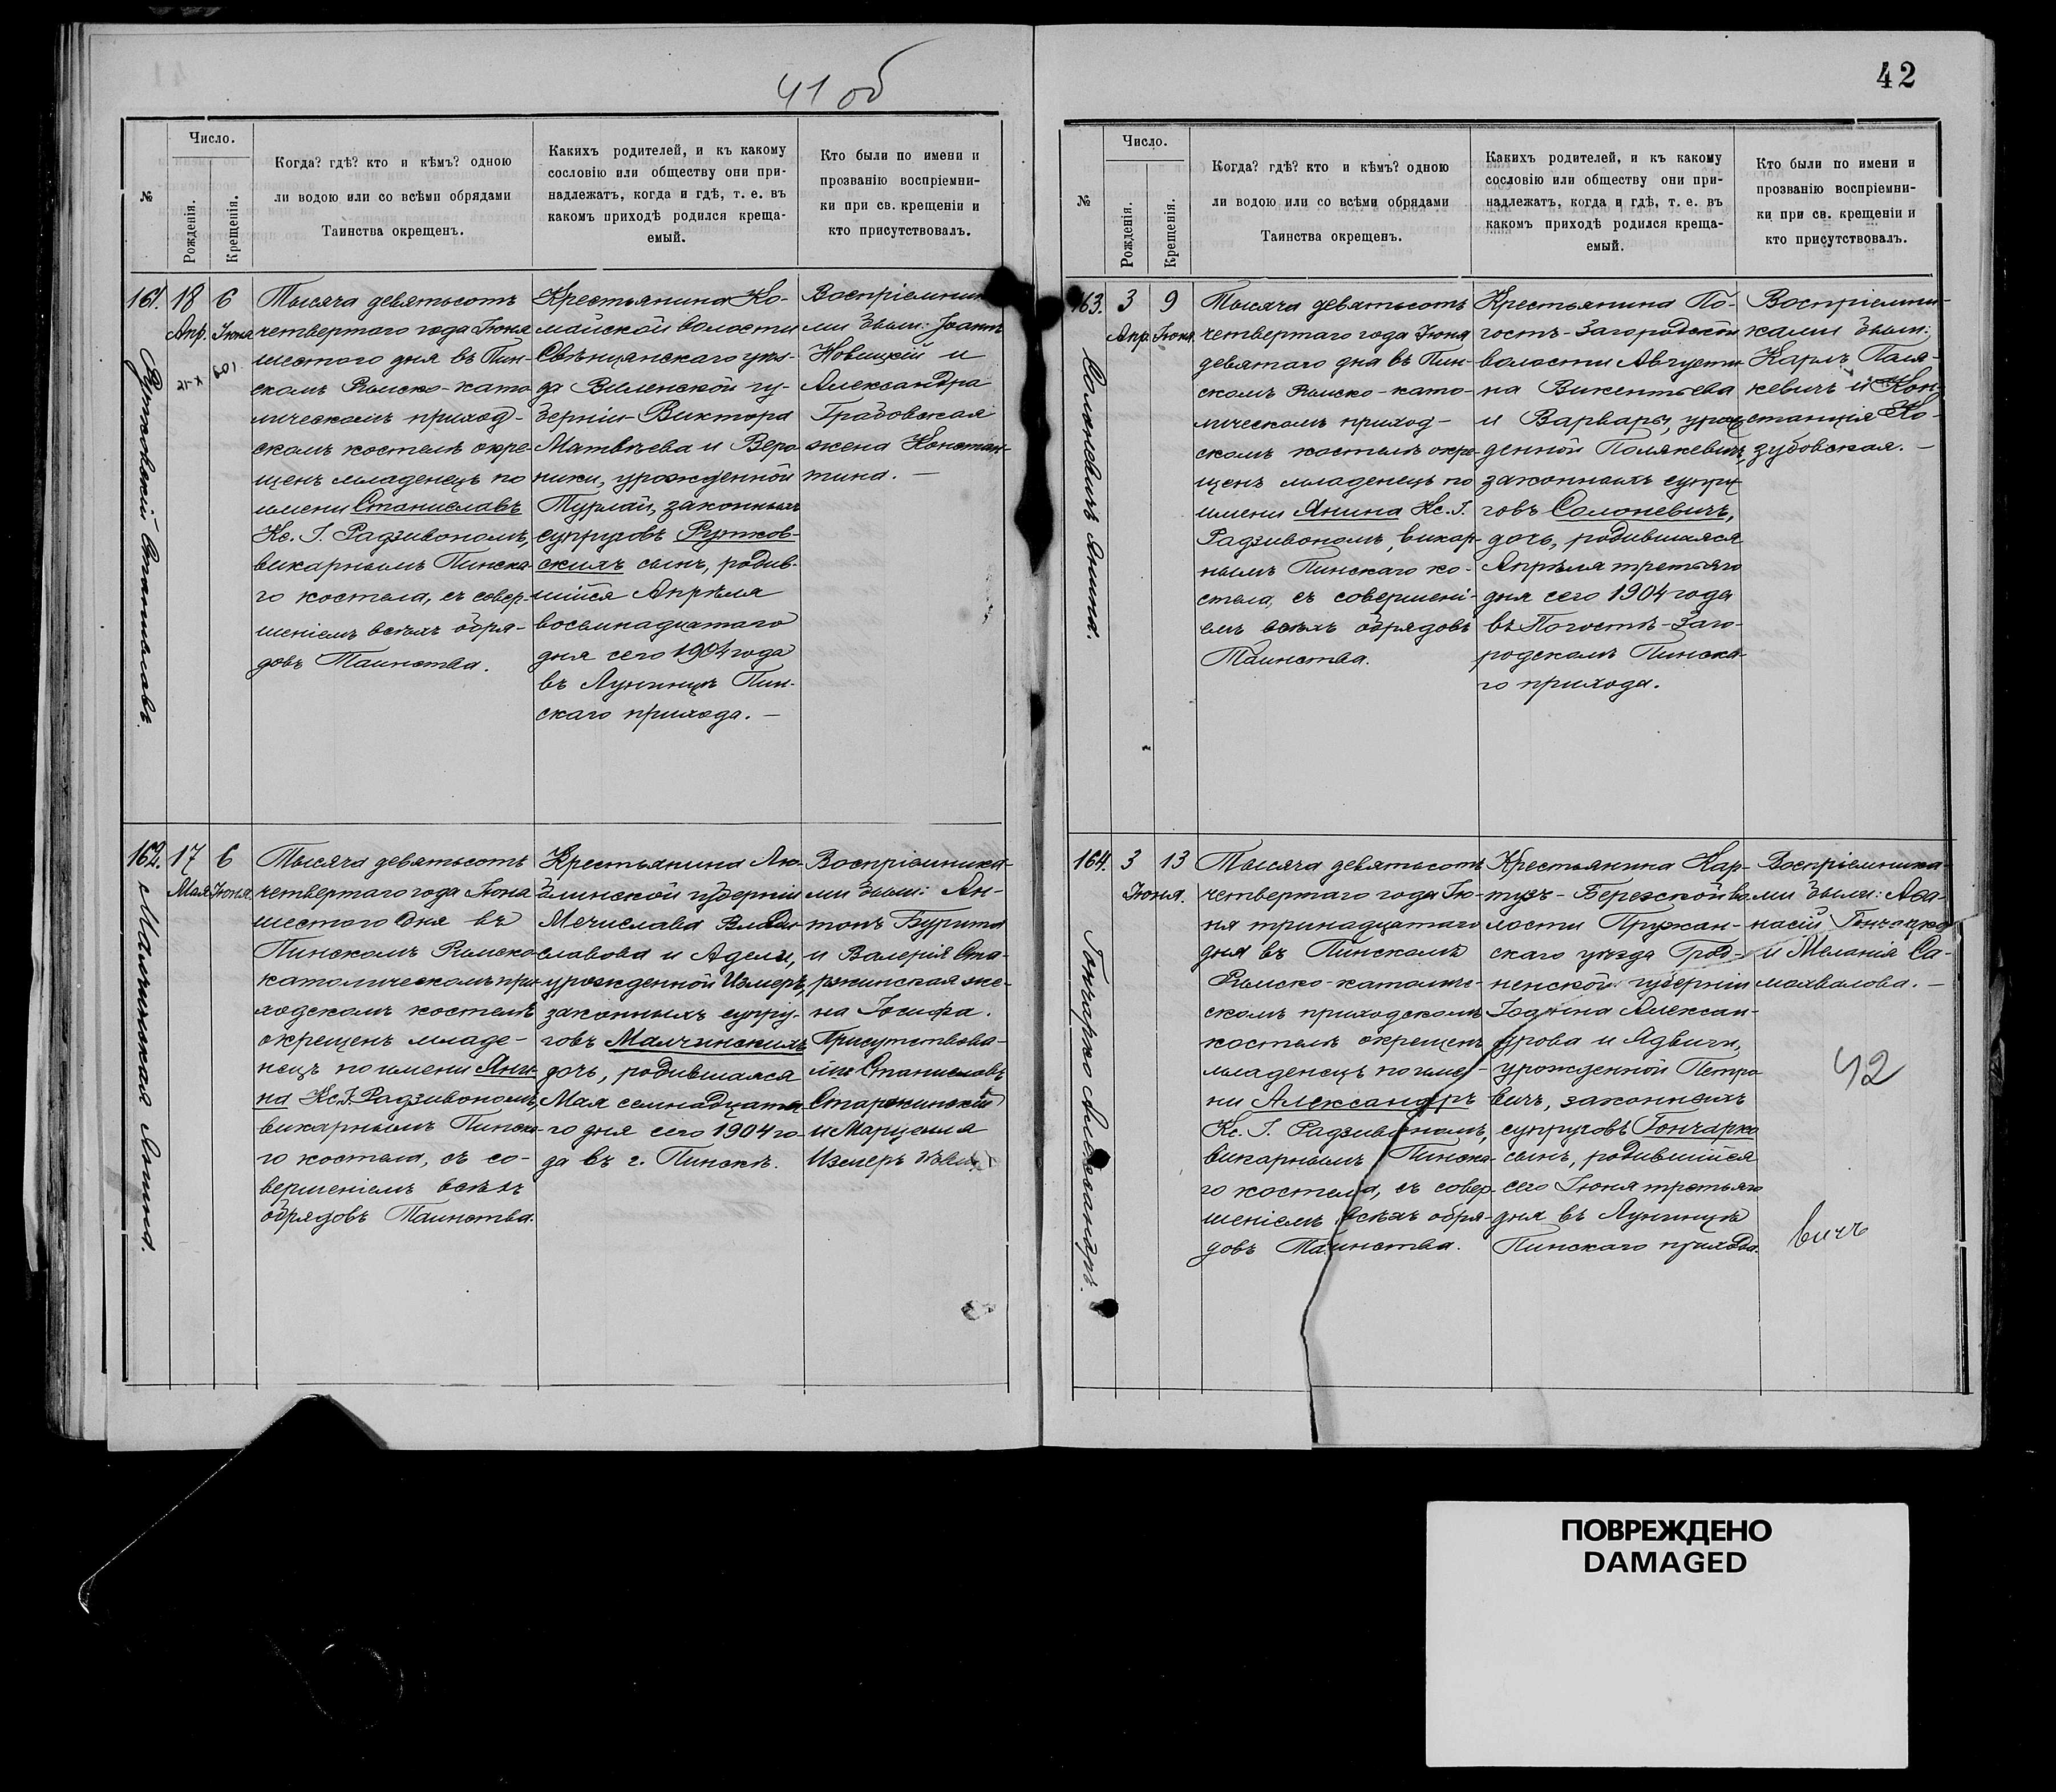 41 об
№
Число.
Рожденія.
Крещенія.
Когда? гдѣ? кто и кѣмъ? одною
ли водою или со всѣми обрядами
Таинства окрещенъ.
Какихъ родителей, и къ какому
сословію или обществу они при-
надлежатъ, когда и гдѣ, т. е. въ
какомъ приходѣ родился креща-
емый.
Кто были по имени и
прозванію воспріемни-
ки при св. крещеніи и
кто присутствовалъ.
161.
Рутковскій Станиславъ.
18
Апр.
6
Іюня
Тысяча девятьсотъ
четвертаго года Іюня
шестого дня въ Пин-
скомъ Римско-като
лическомъ приход-
скомъ костелѣ окре-
щенъ младенецъ по
имени Станиславъ
Кс. І. Радзивономъ,
викарнымъ Пинска-
го костела, съ совер-
шеніемъ всѣхъ обря-
довъ Таинства.
Крестьянина Ко-
майской волости
Свѣнцянскаго уѣз-
да Виленской гу-
берніи Виктора
Матвѣева и Веро-
ники, урожденной
Турлай, законныхъ
супруговъ Рутков-
скихъ сынъ, родив-
шійся Апрѣля
восьмнадцатаго
дня сего 1904 года
въ Лунинцѣ Пин-
скаго прихода. —
Воспріемника-
ми были: Іоаннъ
Новицкій и
Александра
Грабовская
жена Констан-
тина. —
162.
Малчинская Янина.
17
Мая
6
Іюня
Тысяча девятьсотъ
четвертаго года Іюня
шестого дня въ
Пинскомъ Римско
католическомъ при-
ходскомъ костелѣ
окрещенъ младе-
нецъ по имени Яни-
на Кс. І. Радзивономъ,
викарнымъ Пинска-
го костела, съ со-
вершеніемъ всѣхъ
обрядовъ Таинства.
Крестьянина Лю-
блинской губерніи
Мечислава Влади-
славова и Адели,
урожденной Измеръ,
законныхъ супру-
говъ Малчинскихъ
дочь, родившаяся
Мая семнадцата-
го дня сего 1904 го-
да въ г. Пинскѣ.
Воспріемника-
ми были: Ан-
тонъ Бурита
и Валерія Ста-
ржинская же-
на Іосифа.
Присутствова-
ли Станиславъ
Старжинскій
и Марцелла
Измеръ
42
№
Число.
Рожденія.
Крещенія.
Когда? гдѣ? кто и кѣмъ? одною
ли водою или со всѣми обрядами
Таинства окрещенъ.
Какихъ родителей, и къ какому
сословію или обществу они при-
надлежатъ, когда и гдѣ, т. е. въ
какомъ приходѣ родился креща-
емый.
Кто были по имени и
прозванію воспріемни-
ки при св. крещеніи и
кто присутствовалъ.
163.
Солоневичъ Янина.
3
Апр.
9
Іюня.
Тысяча девятьсотъ
четвертаго года Іюня
девятаго дня въ Пин-
скомъ Римско-като-
лическомъ приход-
скомъ костелѣ окре-
щенъ младенецъ по
имени Янина Кс. І.
Радзивономъ, викар-
нымъ Пинскаго ко-
стела, съ совершені-
емъ всѣхъ обрядовъ
Таинства.
Крестьянина По-
гостъ-Загородской
волости Августи-
на Викентьева
и Варвары, урож-
денной Полякевичъ,
законныхъ супру
говъ Солоневичъ,
дочь, родившаяся
Апрѣля третьяго
дня сего 1904 года
въ Погостѣ-Заго-
родскомъ Пинска-
го прихода.
Воспріемни-
ками были:
Карлъ Поля-
кевичъ и Кон-
станція Ко-
зубовская. —
164.
Гончарко Александръ.
3
13
Іюня.
Тысяча девятьсотъ
четвертаго года Ію-
ня тринадцатаго
дня въ Пинскомъ
Римско-католиче-
скомъ приходскомъ
костелѣ окрещенъ
младенецъ по име-
ни Александръ
Кс. І. Радзивономъ,
викарнымъ Пинска-
го костела, съ совер-
шеніемъ всѣхъ обря-
довъ Таинства.
Крестьянина Кар-
тузъ-Березской во-
лости Пружан-
скаго уѣзда Грод-
ненской губерніи
Іосифа Алексан-
дрова и Ядвиги,
урожденной Петро
вичъ, законныхъ
супруговъ Гончарко
сынъ, родившійся
сего Іюня третьяго
дня въ Лунинцѣ
Пинскаго прихода.
Воспріемника-
ми были: Аѳа-
насій Гончарко
и Меланія Са-
мохвалова. —
42
вичъ
ПОВРЕЖДЕНО
DAMAGED